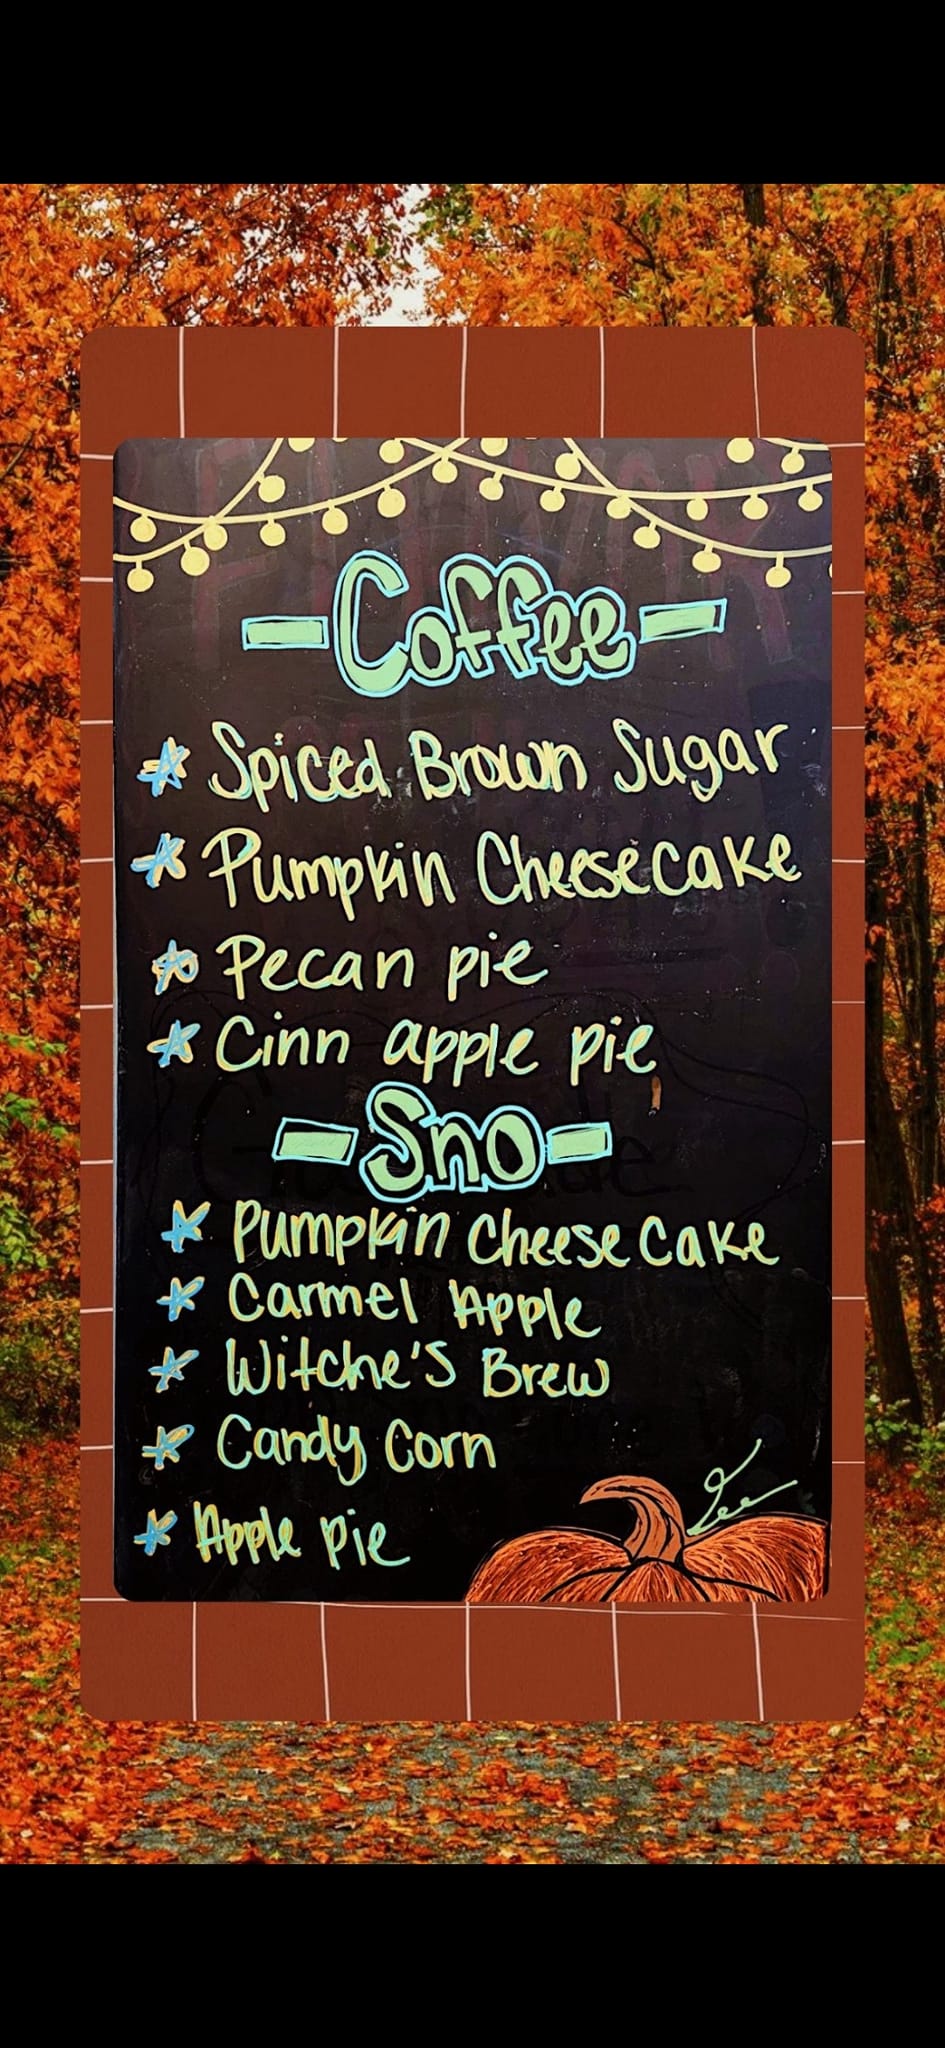 Coffee
Spiced Brown Sugar
Pumpkin Cheesecake
Pecan pie
Cinn apple pie
Sno
Pumpkin Cheese Cake
Carmel Apple
Witche's Brew
Candy Corn
Apple pie
Lee